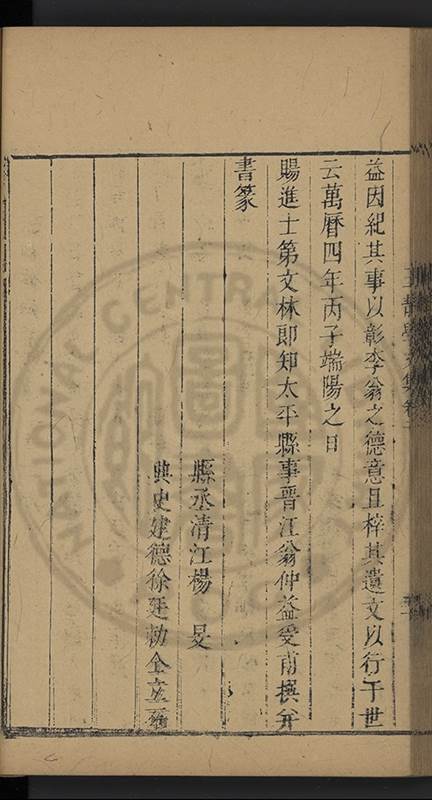 益因紀其事以彰李翁之德意且梓其遺文以行于世
云萬曆四年丙子端陽之日
賜進士第文林郎知太平縣事晉江翁仲益受甫撰并
書篆
縣丞清江楊 旻
典史建德徐廷勅全立石